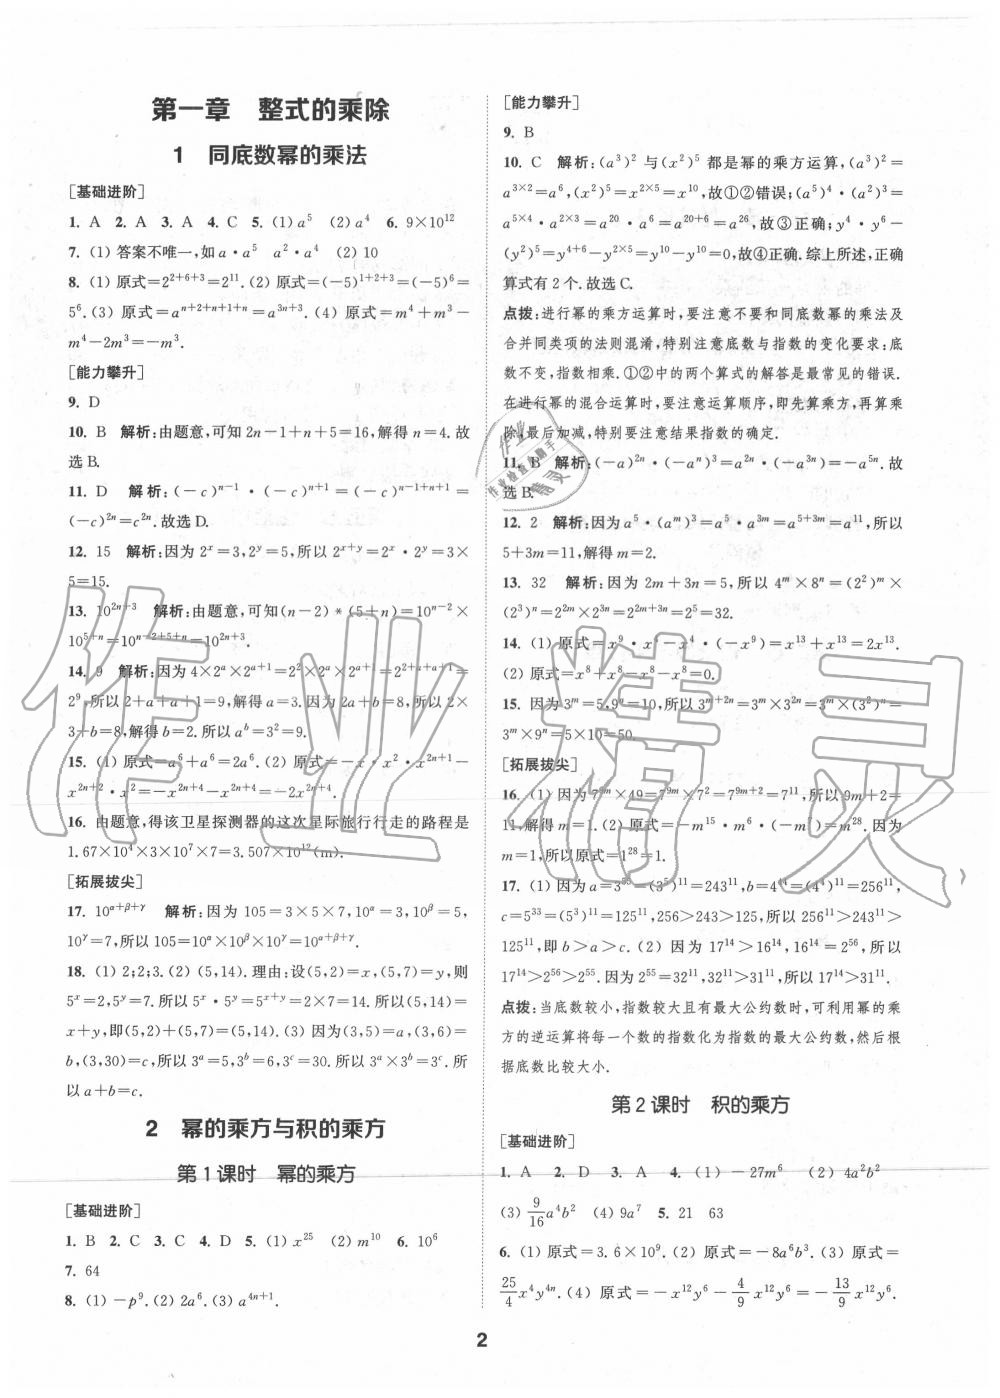 第一章 整式的乘除
1 同底数幂的乘法
[基础进阶]
1. A 2. A 3. A 4. C 5. (1) a⁵ (2) a⁴ 6. 9×10¹²
7. (1) 答案不唯一,如 a·a⁵ a²·a⁴ (2) 10
8. (1) 原式=2²⁺⁶⁺³=2¹¹.(2) 原式=(-5)¹⁺²⁺³=(-5)⁶=
5⁶.(3) 原式=aⁿ⁺²⁺ⁿ⁺¹⁺ⁿ=a³ⁿ⁺³.(4) 原式=m⁴+m³-
m⁴-2m³=-m³.
[能力攀升]
9. D
10. B 解析:由题意,可知 2n-1+n+5=16,解得 n=4.故
选 B.
11. D 解析:(-c)ⁿ⁻¹·(-c)ⁿ⁺¹=(-c)ⁿ⁻¹⁺ⁿ⁺¹=
(-c)²ⁿ=c²ⁿ.故选 D.
12. 15 解析:因为 2ˣ=3,2ʸ=5,所以 2ˣ⁺ʸ=2ˣ·2ʸ=3×
5=15.
13. 10²ⁿ⁺³ 解析:由题意,可知(n-2)*(5+n)=10ⁿ⁻²×
10⁵⁺ⁿ=10ⁿ⁻²⁺⁵⁺ⁿ=10²ⁿ⁺³.
14. 9 解析:因为 4×2ᵃ×2ᵃ⁺¹=2²×2ᵃ×2ᵃ⁺¹=2²⁺ᵃ⁺ᵃ⁺¹=
2⁹,所以 2+a+a+1=9,解得 a=3.因为 2a+b=8,所以 2×
3+b=8,解得 b=2.所以 aᵇ=3²=9.
15. (1) 原式=a⁶+a⁶=2a⁶.(2) 原式=-x·x²·x²ⁿ⁺¹-
x²ⁿ⁺²·x²=-x²ⁿ⁺⁴-x²ⁿ⁺⁴=-2x²ⁿ⁺⁴.
16. 由题意,得该卫星探测器的这次星际旅行行走的路程是
1.67×10⁴×3×10⁷×7=3.507×10¹²(m).
[拓展拔尖]
17. 10^(α+β+γ) 解析:因为 105=3×5×7,10^α=3,10^β=5,
10^γ=7,所以 105=10^α×10^β×10^γ=10^(α+β+γ).
18. (1) 2;2;3.(2) (5,14).理由:设(5,2)=x,(5,7)=y,则
5ˣ=2,5ʸ=7.所以 5ˣ·5ʸ=5ˣ⁺ʸ=2×7=14.所以(5,14)=
x+y,即(5,2)+(5,7)=(5,14).(3) 因为(3,5)=a,(3,6)=
b,(3,30)=c,所以 3ᵃ=5,3ᵇ=6,3ᶜ=30.所以 3ᵃ×3ᵇ=3ᶜ.所
以 a+b=c.
2 幂的乘方与积的乘方
第 1 课时 幂的乘方
[基础进阶]
1. B 2. C 3. C 4. D 5. (1) x²⁵ (2) m¹⁰ 6. 10⁶
7. 64
8. (1) -p⁹.(2) 2a⁶.(3) a⁴ⁿ⁺¹.
[能力攀升]
9. B
10. C 解析:(a³)² 与 (x²)⁵ 都是幂的乘方运算,(a³)²=
a³ˣ²=a⁶,(x²)⁵=x²ˣ⁵=x¹⁰,故①②错误;(a⁵)⁴·(a²)³=
a⁵ˣ⁴·a²ˣ³=a²⁰·a⁶=a²⁰⁺⁶=a²⁶,故③正确;y⁴·y⁶-
(y²)⁵=y⁴⁺⁶-y²ˣ⁵=y¹⁰-y¹⁰=0,故④正确.综上所述,正确
算式有 2 个.故选 C.
点拨:进行幂的乘方运算时,要注意不要和同底数幂的乘法及
合并同类项的法则混淆,特别注意底数与指数的变化要求:底
数不变,指数相乘.①②中的两个算式的解答是最常见的错误.
在进行幂的混合运算时,要注意运算顺序,即先算乘方,再算乘
除,最后加减,特别要注意结果指数的确定.
11. B 解析:(-a)²ⁿ·(-aⁿ)³=a²ⁿ·(-a³ⁿ)=-a⁵ⁿ.故
选 B.
12. 2 解析:因为 a⁵·(aᵐ)³=a⁵·a³ᵐ=a⁵⁺³ᵐ=a¹¹,所以
5+3m=11,解得 m=2.
13. 32 解析:因为 2m+3n=5,所以 4ᵐ×8ⁿ=(2²)ᵐ×
(2³)ⁿ=2²ᵐ×2³ⁿ=2²ᵐ⁺³ⁿ=2⁵=32.
14. (1) 原式=x⁹·x⁴-x⁴·(-x⁹)=x¹³+x¹³=2x¹³.
(2) 原式=x⁸+x⁸-x⁸-x⁸=0.
15. 因为 3ᵐ=5,9ⁿ=10,所以 3ᵐ⁺²ⁿ=3ᵐ×3²ⁿ=3ᵐ×(3²)ⁿ=
3ᵐ×9ⁿ=5×10=50.
[拓展拔尖]
16. (1) 因为 7⁹ᵐ×49=7⁹ᵐ×7²=7⁹ᵐ⁺²=7¹¹,所以 9m+2=
11,解得 m=1.(2) 原式=-m¹⁵·m⁶·(-m⁷)=m²⁸.因为
m=1,所以原式=1²⁸=1.
17. (1) 因为 a=3⁵⁵=(3⁵)¹¹=243¹¹,b=4⁴⁴=(4⁴)¹¹=256¹¹,
c=5³³=(5³)¹¹=125¹¹,256>243>125,所以 256¹¹>243¹¹>
125¹¹,即 b>a>c.(2) 因为 17¹⁴>16¹⁴,16¹⁴=2⁵⁶,所以
17¹⁴>2⁵⁶>2⁵⁵.因为 2⁵⁵=32¹¹,32¹¹>31¹¹,所以 17¹⁴>31¹¹.
点拨:当底数较小,指数较大且有最大公约数时,可利用幂的乘
方的逆运算将每一个数的指数化为指数的最大公约数,然后根
据底数比较大小.
第 2 课时 积的乘方
[基础进阶]
1. A 2. D 3. A 4. (1) -27m⁶ (2) 4a²b²
(3) 9/16 a⁴b² (4) 9a⁷ 5. 21 63
6. (1) 原式=3.6×10⁹.(2) 原式=-8a⁶b³.(3) 原式=
25/4 x⁴y⁴ⁿ.(4) 原式=-x¹²y⁶-4/9 x¹²y⁶=-13/9 x¹²y⁶.
2
作业精灵